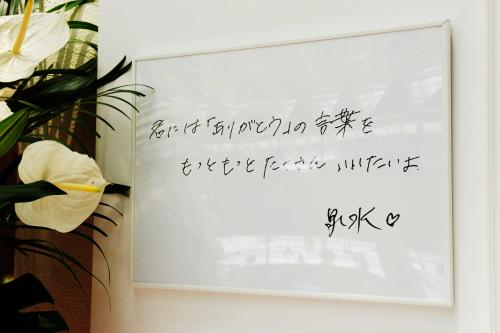 君には「ありがとう」の言葉を
もっともっとたくさん いいたいよ
泉水♡